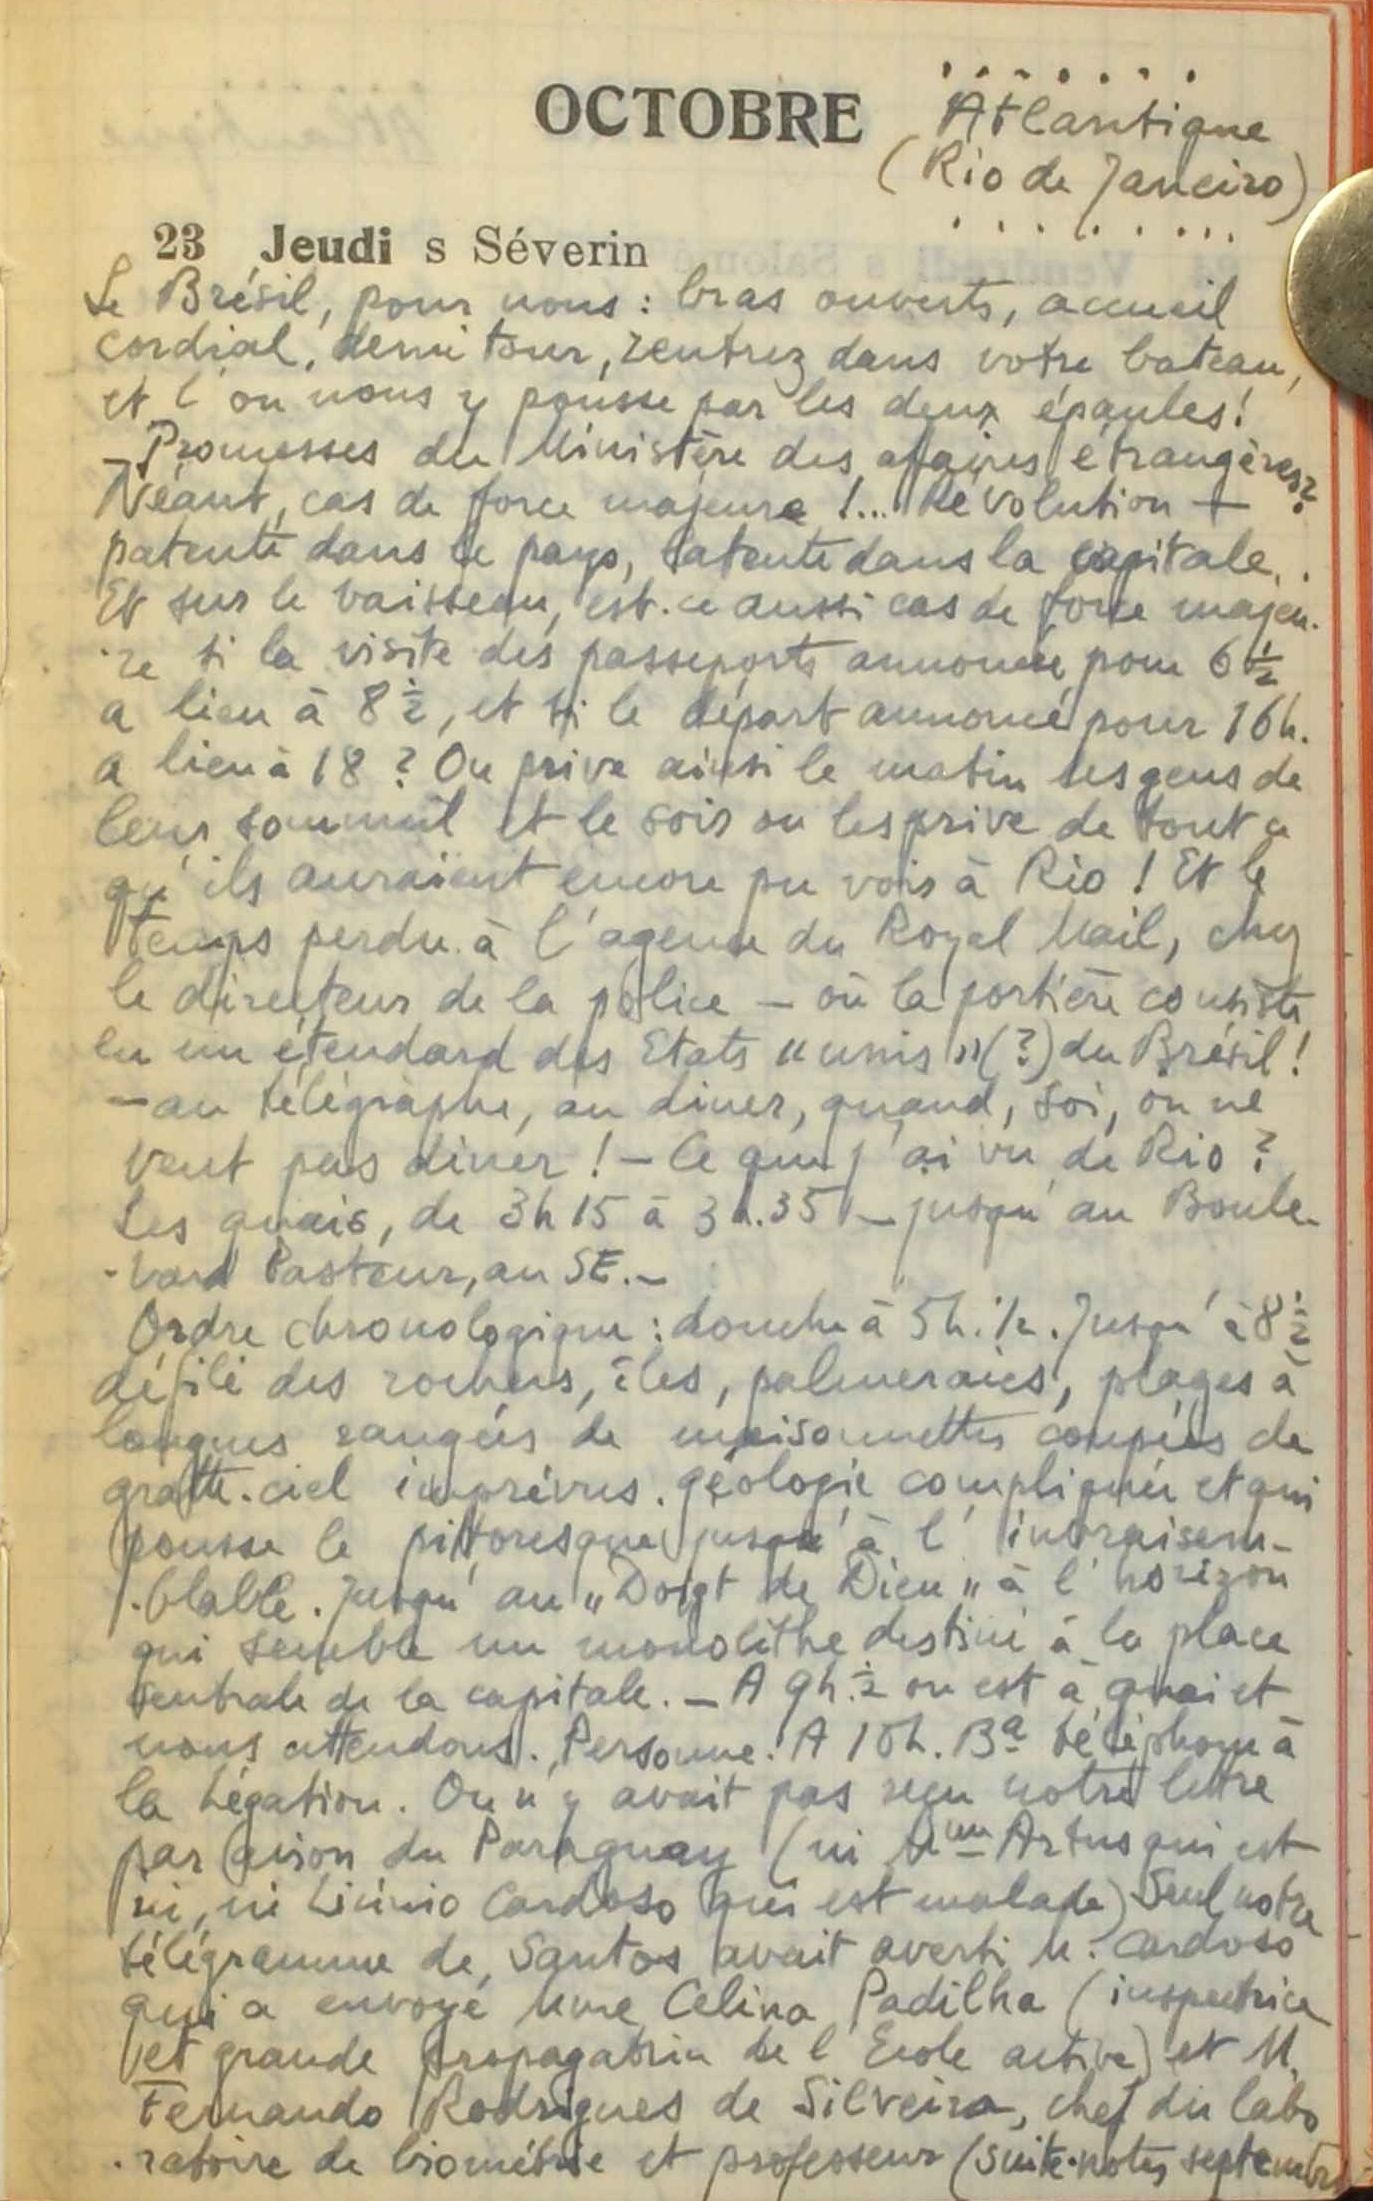 OCTOBRE
Atlantique
(Rio de Janeiro)
23 Jeudi s Séverin
Le Brésil, pour nous : bras ouverts, accueil
cordial, demi tour, rentrez dans votre bateau,
et l'on nous y pousse par les deux épaules!
– Promesses du Ministère des affaires étrangères?
Néant, cas de force majeure !... Révolution –
patente dans le pays, latente dans la capitale.
Et sur le vaisseau, est-ce aussi cas de force majeu-
-re si la visite des passeports annoncée pour 6 1/2
a lieu à 8 1/2, et si le départ annoncé pour 16h.
a lieu à 18 ? On prive ainsi le matin les gens de
leur sommeil et le soir on les prive de tout ce
qu'ils auraient encore pu voir à Rio ! Et le
temps perdu à l'agence du Royal Mail, chez
le directeur de la police – où la portière consiste
en un étendard des Etats "unis" (?) du Brésil !
– au télégraphe, au diner, quand, soi, on ne
veut pas diner ! – Ce que j'ai vu de Rio ?
Les quais, de 3h 15 à 3h.35 – jusqu'au Boule-
-vard Pasteur, au SE. –
Ordre chronologique : douche à 5h. 1/2. Jusqu'à 8 1/2
défilé des rochers, îles, palmeraies, plages à
longues rangées de maisonnettes coupées de
gratte-ciel imprévus. géologie compliquée et qui
pousse le pittoresque jusqu'à l'invraisem-
-blable. Jusqu'au „Doigt de Dieu„ à l'horizon
qui semble un monolithe destiné à la place
centrale de la capitale. – A 9h. 1/2 on est à quai et
nous attendons. Personne. A 10h. Ba téléphone à
la Légation. On n'y avait pas reçu notre lettre
par avion du Paraguay (ni Mme Artus qui est
ici, ni Licinio Cardoso qui est malade) Seul notre
télégramme de Santos avait averti M. Cardoso
qui a envoyé Mme Celina Padilha (inspectrice
et grande propagatrice de l'Ecole active) et M.
Fernando Rodrigues de Silveira, chef du labo
-ratoire de biométrie et professeur (suite-notes septembre